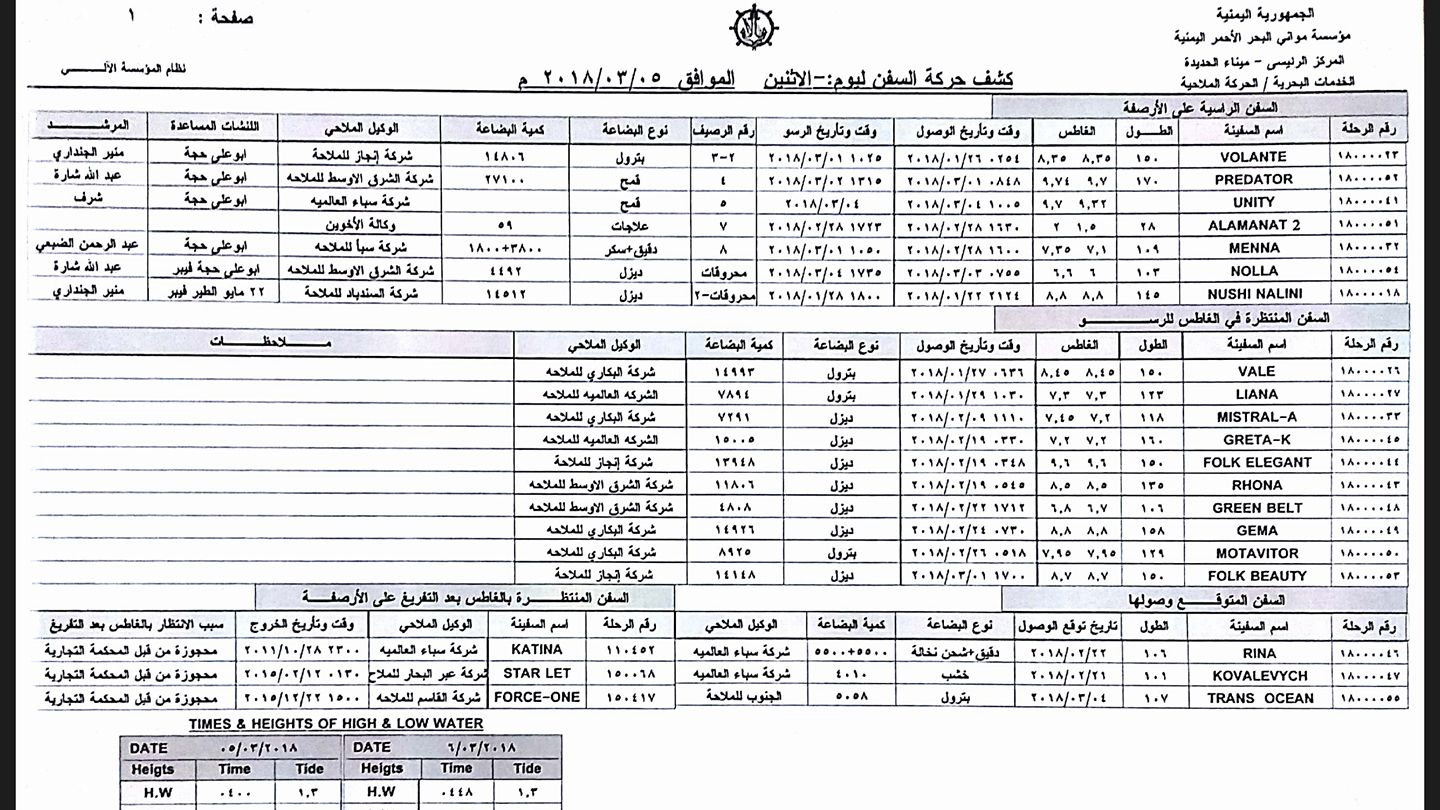 الجمهورية اليمنية
مؤسسة مواني البحر الأحمر اليمنية
المركز الرئيسى - ميناء الحديدة
الخدمات البحرية / الحركة الملاحية
صفحة : ١
نظام المؤسسة الآلـــــي
كشف حركة السفن ليوم:-الاثنين الموافق ٢٠١٨/٠٣/٠٥ م
السفن الراسية على الأرصفة
رقم الرحلة اسم السفينة الطـــول الغاطس وقت وتأريخ الوصول وقت وتأريخ الرسو رقم الرصيف نوع البضاعة كمية البضاعة الوكيل الملاحي اللنشات المساعدة المرشــــد
١٨٠٠٠٠٢٣ VOLANTE ١٥٠ ٨,٣٥ ٨,٣٥ ٢٠١٨/٠١/٢٦ ٠٢٥٤ ٢٠١٨/٠٣/٠١ ١٠٢٥ ٣-٢ بترول ١٤٨٠٦ شركة إنجاز للملاحة ابوعلى حجة منير الجنداري
١٨٠٠٠٠٥٢ PREDATOR ١٧٠ ٩,٧ ٩,٧٤ ٢٠١٨/٠٣/٠١ ٠٨٤٨ ٢٠١٨/٠٣/٠٢ ١٣١٥ ٤ قمح ٢٧١٠٠ شركة الشرق الاوسط للملاحه ابوعلى حجة عبد الله شارة
١٨٠٠٠٠٤١ UNITY ٩,٣٢ ٩,٧ ٢٠١٨/٠٣/٠٤ ١٠٠٥ ٢٠١٨/٠٣/٠٤ ٥ قمح شركة سباء العالميه ابوعلى حجة شرف
١٨٠٠٠٠٥١ ALAMANAT 2 ٢٨ ١,٥ ٢ ٢٠١٨/٠٢/٢٨ ١٦٣٠ ٢٠١٨/٠٢/٢٨ ١٧٢٣ ٧ علاجات ٥٩ وكالة الأخوين
١٨٠٠٠٠٣٢ MENNA ١٠٩ ٧,١ ٧,٣٥ ٢٠١٨/٠٢/٢٨ ١٦٠٠ ٢٠١٨/٠٣/٠١ ١٠٥٠ ٨ دقيق+سكر ٣٨٠٠+١٨٠٠ شركة سبأ للملاحه ابوعلى حجة عبد الرحمن الضبعي
١٨٠٠٠٠٥٤ NOLLA ١٠٣ ٦ ٦,٦ ٢٠١٨/٠٣/٠٣ ٠٧٥٥ ٢٠١٨/٠٣/٠٤ ١٧٣٥ محروقات ديزل ٤٤٩٢ شركة الشرق الاوسط للملاحه ابوعلى حجة فيبر عبد الله شارة
١٨٠٠٠٠١٨ NUSHI NALINI ١٤٥ ٨,٨ ٨,٨ ٢٠١٨/٠١/٢٢ ٢١٢٤ ٢٠١٨/٠١/٢٨ ١٨٠٠ محروقات-٢ ديزل ١٤٥١٢ شركة السندباد للملاحة ٢٢ مايو الطير فيبر منير الجنداري
السفن المنتظرة في الغاطس للرســـــــو
رقم الرحلة اسم السفينة الطول الغاطس وقت وتأريخ الوصول نوع البضاعة كمية البضاعة الوكيل الملاحي مـــــلاحظـــــات
١٨٠٠٠٠٢٦ VALE ١٥٠ ٨,٤٥ ٨,٤٥ ٢٠١٨/٠١/٢٧ ٠٦٣٦ بترول ١٤٩٩٣ شركة البكاري للملاحه
١٨٠٠٠٠٢٧ LIANA ١٢٣ ٧,٣ ٧,٣ ٢٠١٨/٠١/٢٩ ١٠٣٠ بترول ٧٨٩٤ الشركه العالميه للملاحه
١٨٠٠٠٠٣٣ MISTRAL-A ١١٨ ٧,٢ ٧,٤٥ ٢٠١٨/٠٢/٠٩ ١١١٠ ديزل ٧٢٩١ شركة البكاري للملاحه
١٨٠٠٠٠٤٥ GRETA-K ١٦٠ ٧,٢ ٧,٢ ٢٠١٨/٠٢/١٩ ٠٣٣٠ ديزل ١٥٠٠٥ الشركه العالميه للملاحه
١٨٠٠٠٠٤٤ FOLK ELEGANT ١٥٠ ٩,٦ ٩,٦ ٢٠١٨/٠٢/١٩ ٠٣٤٨ ديزل ١٣٩٤٨ شركة إنجاز للملاحة
١٨٠٠٠٠٤٣ RHONA ١٣٥ ٨,٥ ٨,٥ ٢٠١٨/٠٢/١٩ ٠٥٤٥ ديزل ١١٨٠٦ شركة الشرق الاوسط للملاحه
١٨٠٠٠٠٤٨ GREEN BELT ١٠٦ ٦,٧ ٦,٨ ٢٠١٨/٠٢/٢٢ ١٧١٢ ديزل ٤٨٠٨ شركة الشرق الاوسط للملاحه
١٨٠٠٠٠٤٩ GEMA ١٥٨ ٨,٨ ٨,٨ ٢٠١٨/٠٢/٢٤ ٠٧٣٠ ديزل ١٤٩٢٦ شركة البكاري للملاحه
١٨٠٠٠٠٥٠ MOTAVITOR ١٢٩ ٧,٩٥ ٧,٩٥ ٢٠١٨/٠٢/٢٦ ٠٥١٨ بترول ٨٩٢٥ شركة البكاري للملاحه
١٨٠٠٠٠٥٣ FOLK BEAUTY ١٥٠ ٨,٧ ٨,٧ ٢٠١٨/٠٣/٠١ ١٧٠٠ ديزل ١٤١٤٨ شركة إنجاز للملاحة
السفن المتوقـــــع وصولها
رقم الرحلة اسم السفينة الطول تاريخ توقع الوصول نوع البضاعة كمية البضاعة الوكيل الملاحي
١٨٠٠٠٠٤٦ RINA ١٠٦ ٢٠١٨/٠٢/٢٢ دقيق+شحن نخالة ٥٥٠٠+٥٥٠٠ شركة سباء العالميه
١٨٠٠٠٠٤٧ KOVALEVYCH ١٠١ ٢٠١٨/٠٢/٢١ خشب ٤٠١٠ شركة سباء العالميه
١٨٠٠٠٠٥٥ TRANS OCEAN ١٠٧ ٢٠١٨/٠٣/٠٤ بترول ٥٠٥٨ الجنوب للملاحة
السفن المنتظـــــرة بالغاطس بعد التفريغ على الأرصفـــة
رقم الرحلة اسم السفينة الوكيل الملاحي وقت وتأريخ الخروج سبب الانتظار بالغاطس بعد التفريغ
١١٠٤٥٢ KATINA شركة سباء العالميه ٢٠١١/١٠/٢٨ ٢٣٠٠ محجوزة من قبل المحكمة التجارية
١٥٠٠٦٨ STAR LET شركة عبر البحار للملاح ٢٠١٥/٠٢/١٢ ٠١٣٠ محجوزة من قبل المحكمة التجارية
١٥٠٤١٧ FORCE-ONE شركة القاسم للملاحه ٢٠١٥/١٢/٢٢ ١٥٠٠ محجوزة من قبل المحكمة التجارية
TIMES & HEIGHTS OF HIGH & LOW WATER
DATE ٠٥/٠٣/٢٠١٨ DATE ٦/٠٣/٢٠١٨
Heigts Time Tide Heigts Time Tide
H.W ٠٤٠٠ ١,٣ H.W ٠٤٤٨ ١,٣